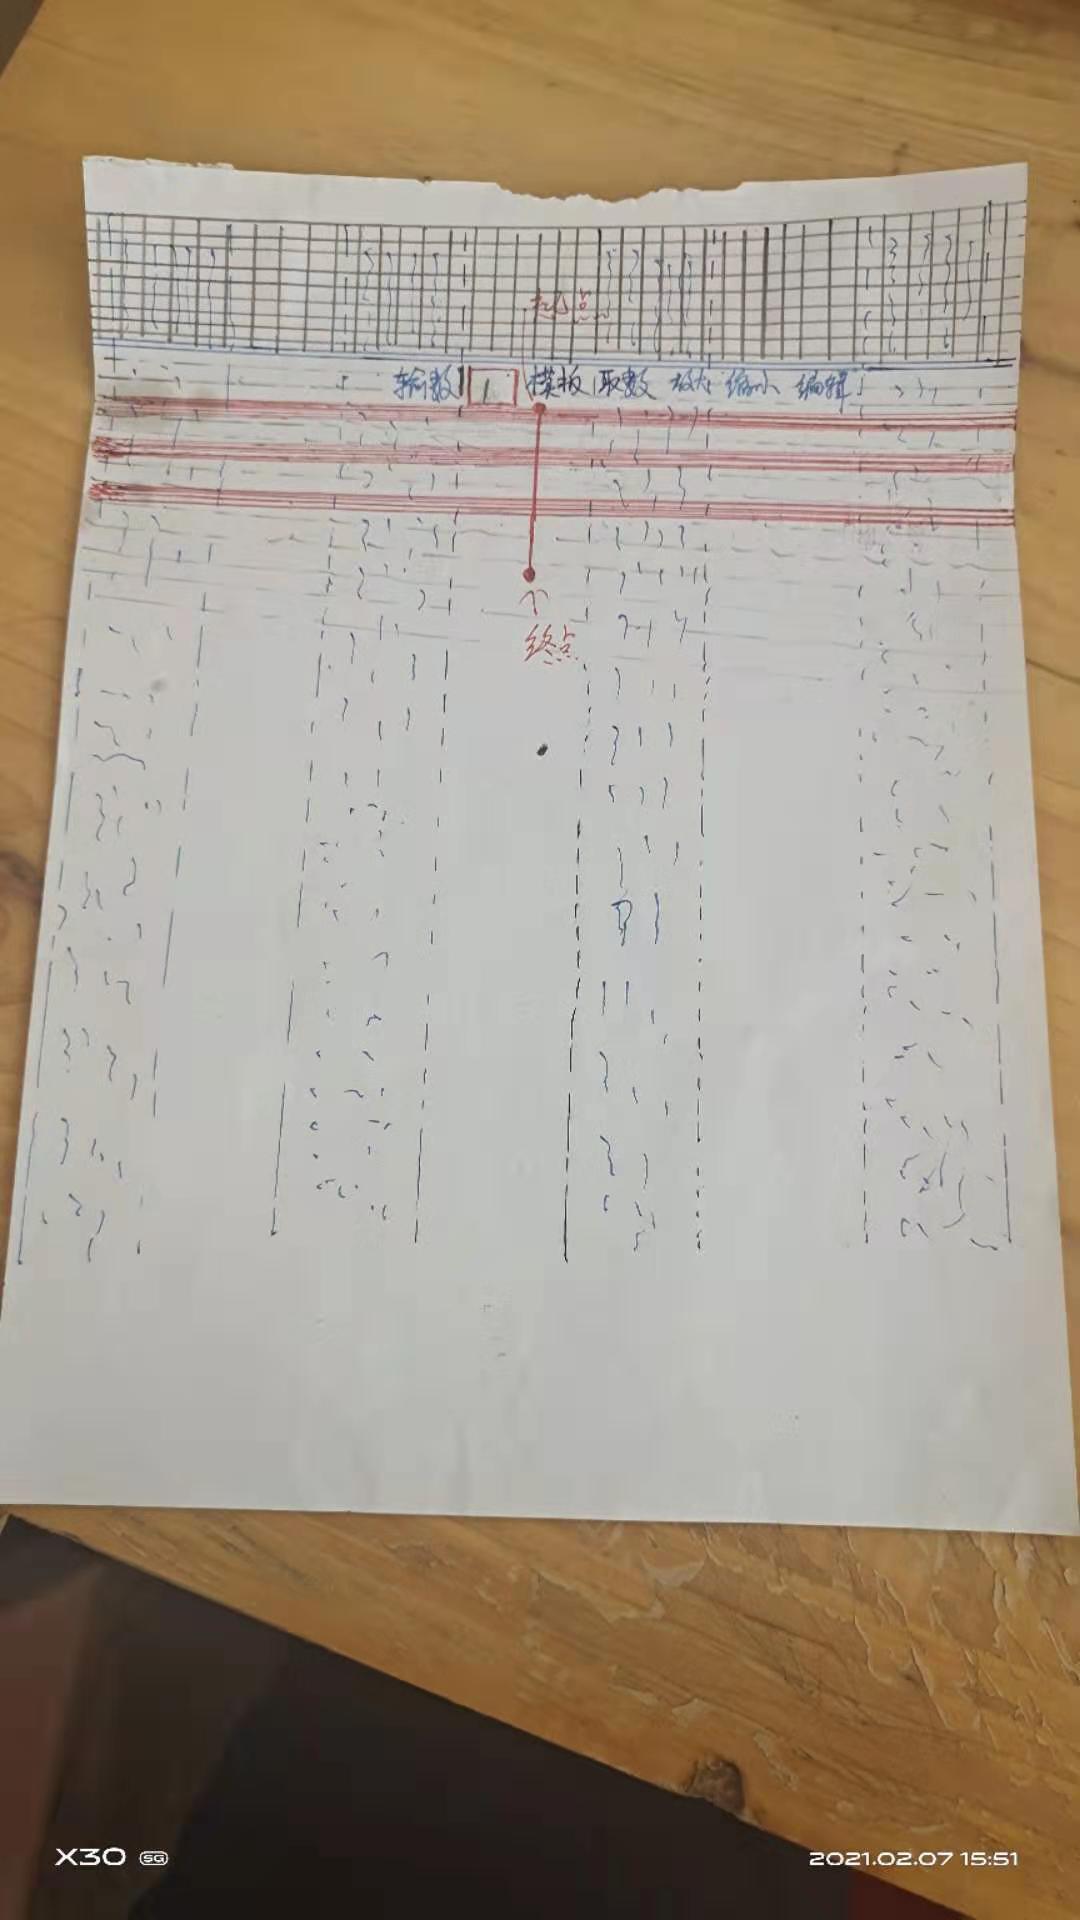 起点
轮数 1 模板 取数 放大 缩小 编辑
终点
X30 5G
2021.02.07 15:51